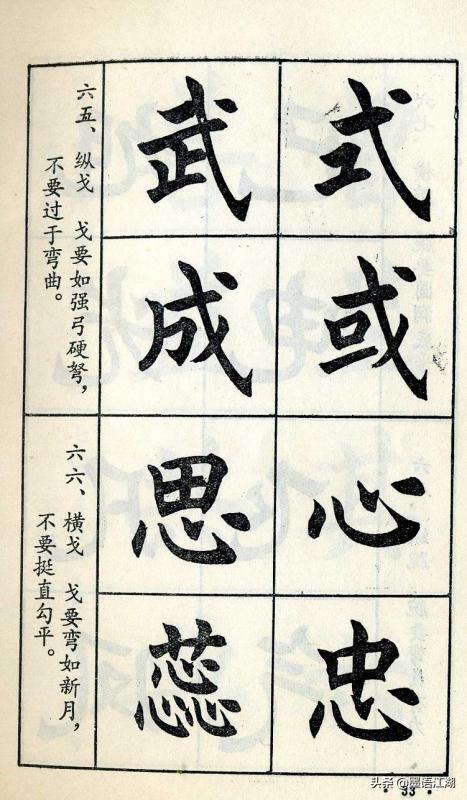 式
或
心
忠
武
成
思
蕊
六五、纵戈 戈要如强弓硬弩，
不要过于弯曲。
六六、横戈 戈要弯如新月，
不要挺直勾平。
·33·
头条@墨语江湖